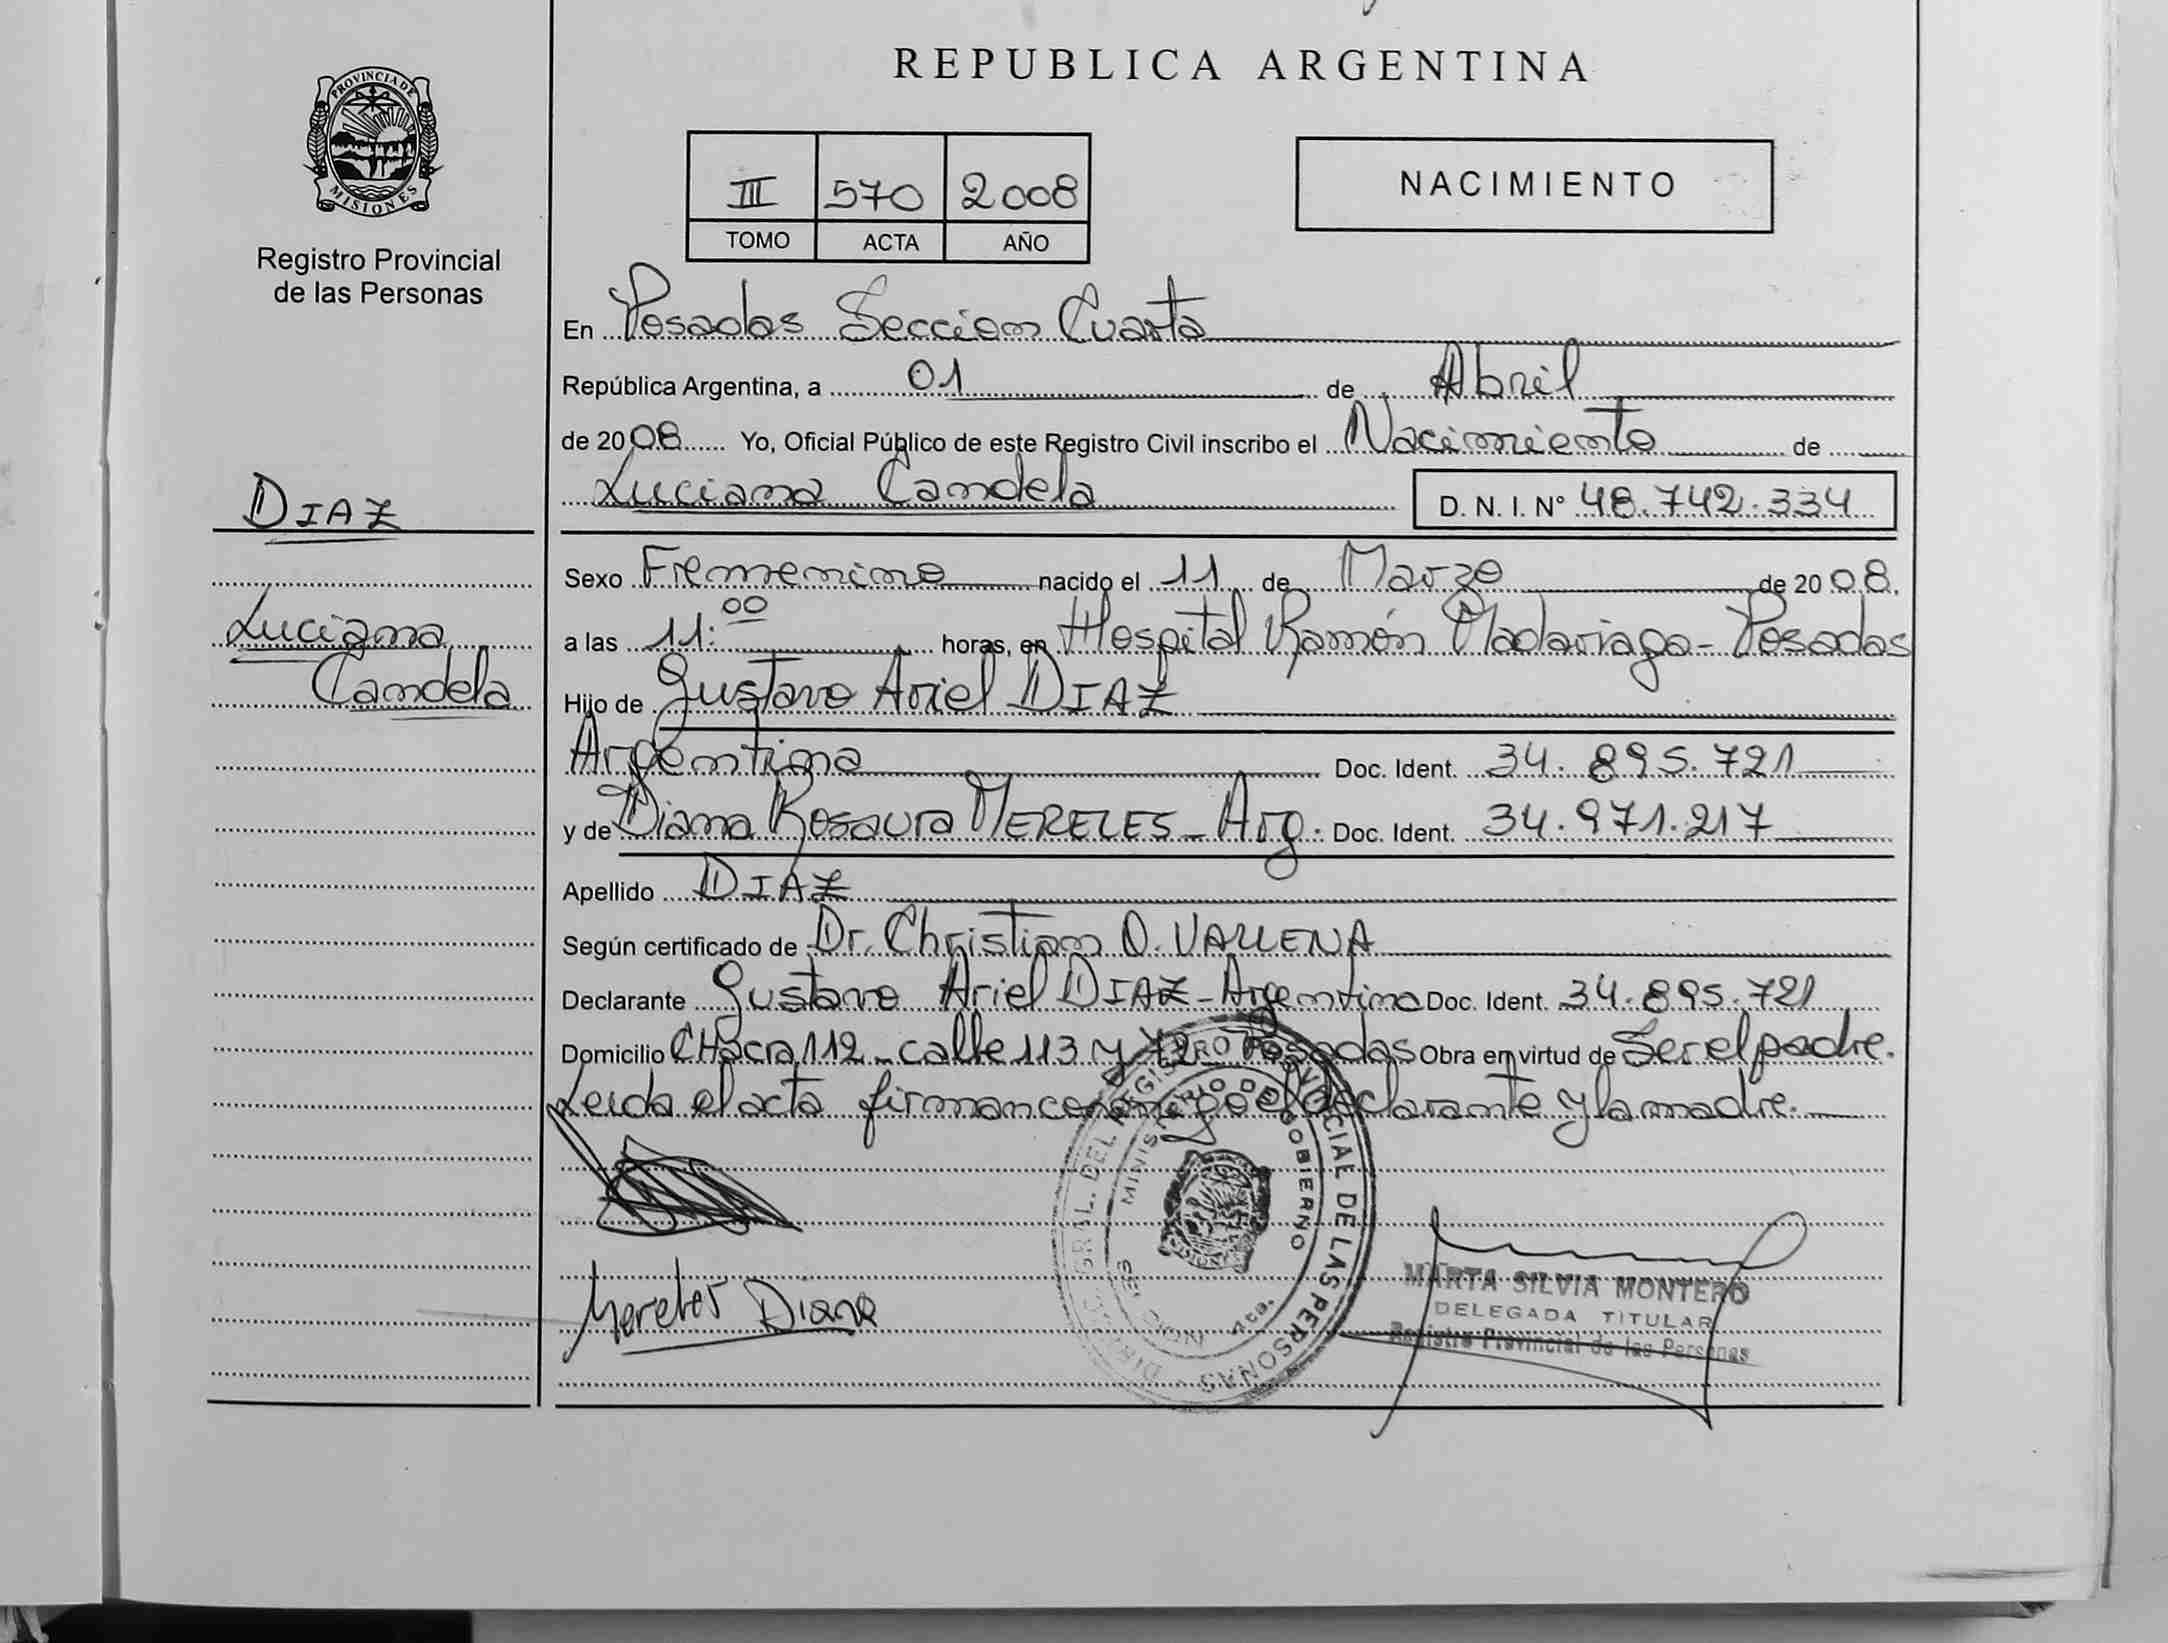 REPUBLICA ARGENTINA
PROVINCIA DE
MISIONES
Registro Provincial
de las Personas
III 570 2008
TOMO ACTA AÑO
NACIMIENTO
DIAZ
Luciana
Candela
En Posadas Seccion Cuarta
República Argentina, a 01 de Abril
de 2008 Yo, Oficial Público de este Registro Civil inscribo el Nacimiento de
Luciana Candela D. N. I. Nº 48.742.334
Sexo Femenino nacido el 11 de Marzo de 2008.
a las 11:00 horas, en Hospital Ramón Madariaga - Posadas
Hijo de Gustavo Ariel DIAZ
Argentina Doc. Ident. 34.895.721
y de Diana Rosaura MERELES - Arg. Doc. Ident. 34.971.217
Apellido DIAZ
Según certificado de Dr. Christian O. VALLENA
Declarante Gustavo Ariel DIAZ - Argentino Doc. Ident. 34.895.721
Domicilio CHacra 112 - calle 113 y 72 Posadas Obra en virtud de Ser el padre.
Leida el acta firman conmigo el declarante y la madre.
REGISTRO PROVINCIAL DE LAS PERSONAS
MINISTERIO DE GOBIERNO
Mereles Diana
MARTA SILVIA MONTERO
DELEGADA TITULAR
Registro Provincial de las Personas